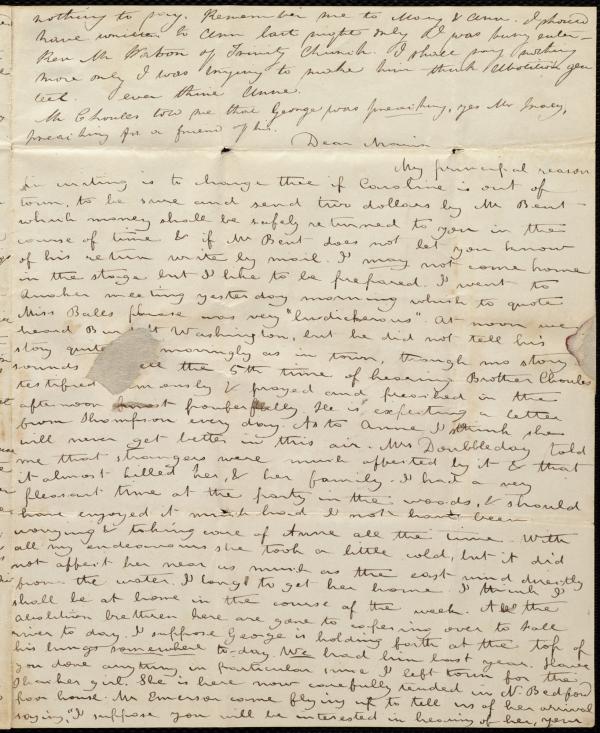 nothing to say. Remember me to Mary & Ann. I should
have written to Ann last night only I was busy enter-
Rev. Mr Watson of Trinity Church. I shall say nothing
more only I was trying to make him think Abolition gen
teel. ever thine Anne.
Mr Choules told me that George was preaching, yes Mr Gracy,
preaching for a friend of his.
Dear Maria
My principal reason
in writing is to charge thee if Caroline is out of
town, to be sure and send two dollars by Mr Bent
which money shall be safely returned to you in the
course of time & if Mr Bent does not let you know
of his return write by mail. I may not come home
in the stage but I like to be prepared. I went to
another meeting yesterday morning which to quote
Miss Balls phrase was very "ludickerous". At noon we
heard Washington, but he did not tell his
story quite as in town, though no story
sounds well the 5th time of hearing. Brother Choules
testified & prayed and preached in the
afternoon most powerfully. He is expecting a letter
from Thompson every day. As to Anne I think she
will never get better in this air. Mrs Doubleday told
me that strangers were much affected by it & that
it almost killed her, & her family. I had a very
pleasant time at the party in the woods, & should
have enjoyed it much had I not have been
worrying & taking care of Anne all the time. With
all my endeavours she took a little cold, but it did
not affect her near as much as the east wind directly
from the water. I long to get her home. I think I
shall be at home in the course of the week. All the
abolition brethren here are gone to conferring over to Fall
river to day. I suppose George is holding forth at the top of
his lungs somewhere to-day. We had him last year. Have
you done anything in particular since I left town for the
Shanker girl. She is here now carefully tended in N. Bedford
poor house. Mr Emerson came flying up to tell us of her arrival
saying, "I suppose you will be interested in hearing of her, your